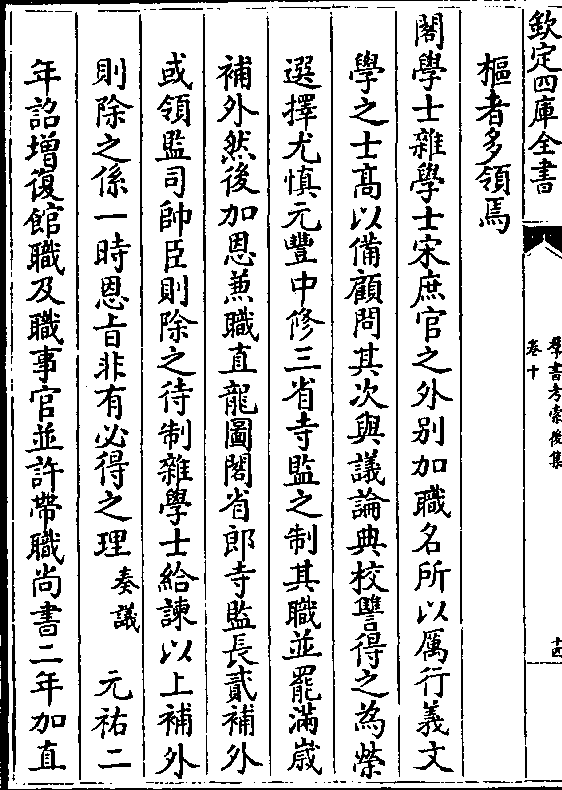 欽定四庫全書
羣書考索後集
卷十
十四
樞者多領焉
閣學士雜學士宋庶官之外別加職名所以厲行義文
學之士髙以備顧問其次與議論典校讐得之為榮
選擇尤慎元豐中修三省寺監之制其職並罷滿歳
補外然後加恩兼職直龍圖閣省郎寺監長貳補外
或領監司帥臣則除之待制雜學士給諫以上補外
則除之係一時恩旨非有必得之理 奏議 元祐二
年詔增復館職及職事官並許帶職尚書二年加直